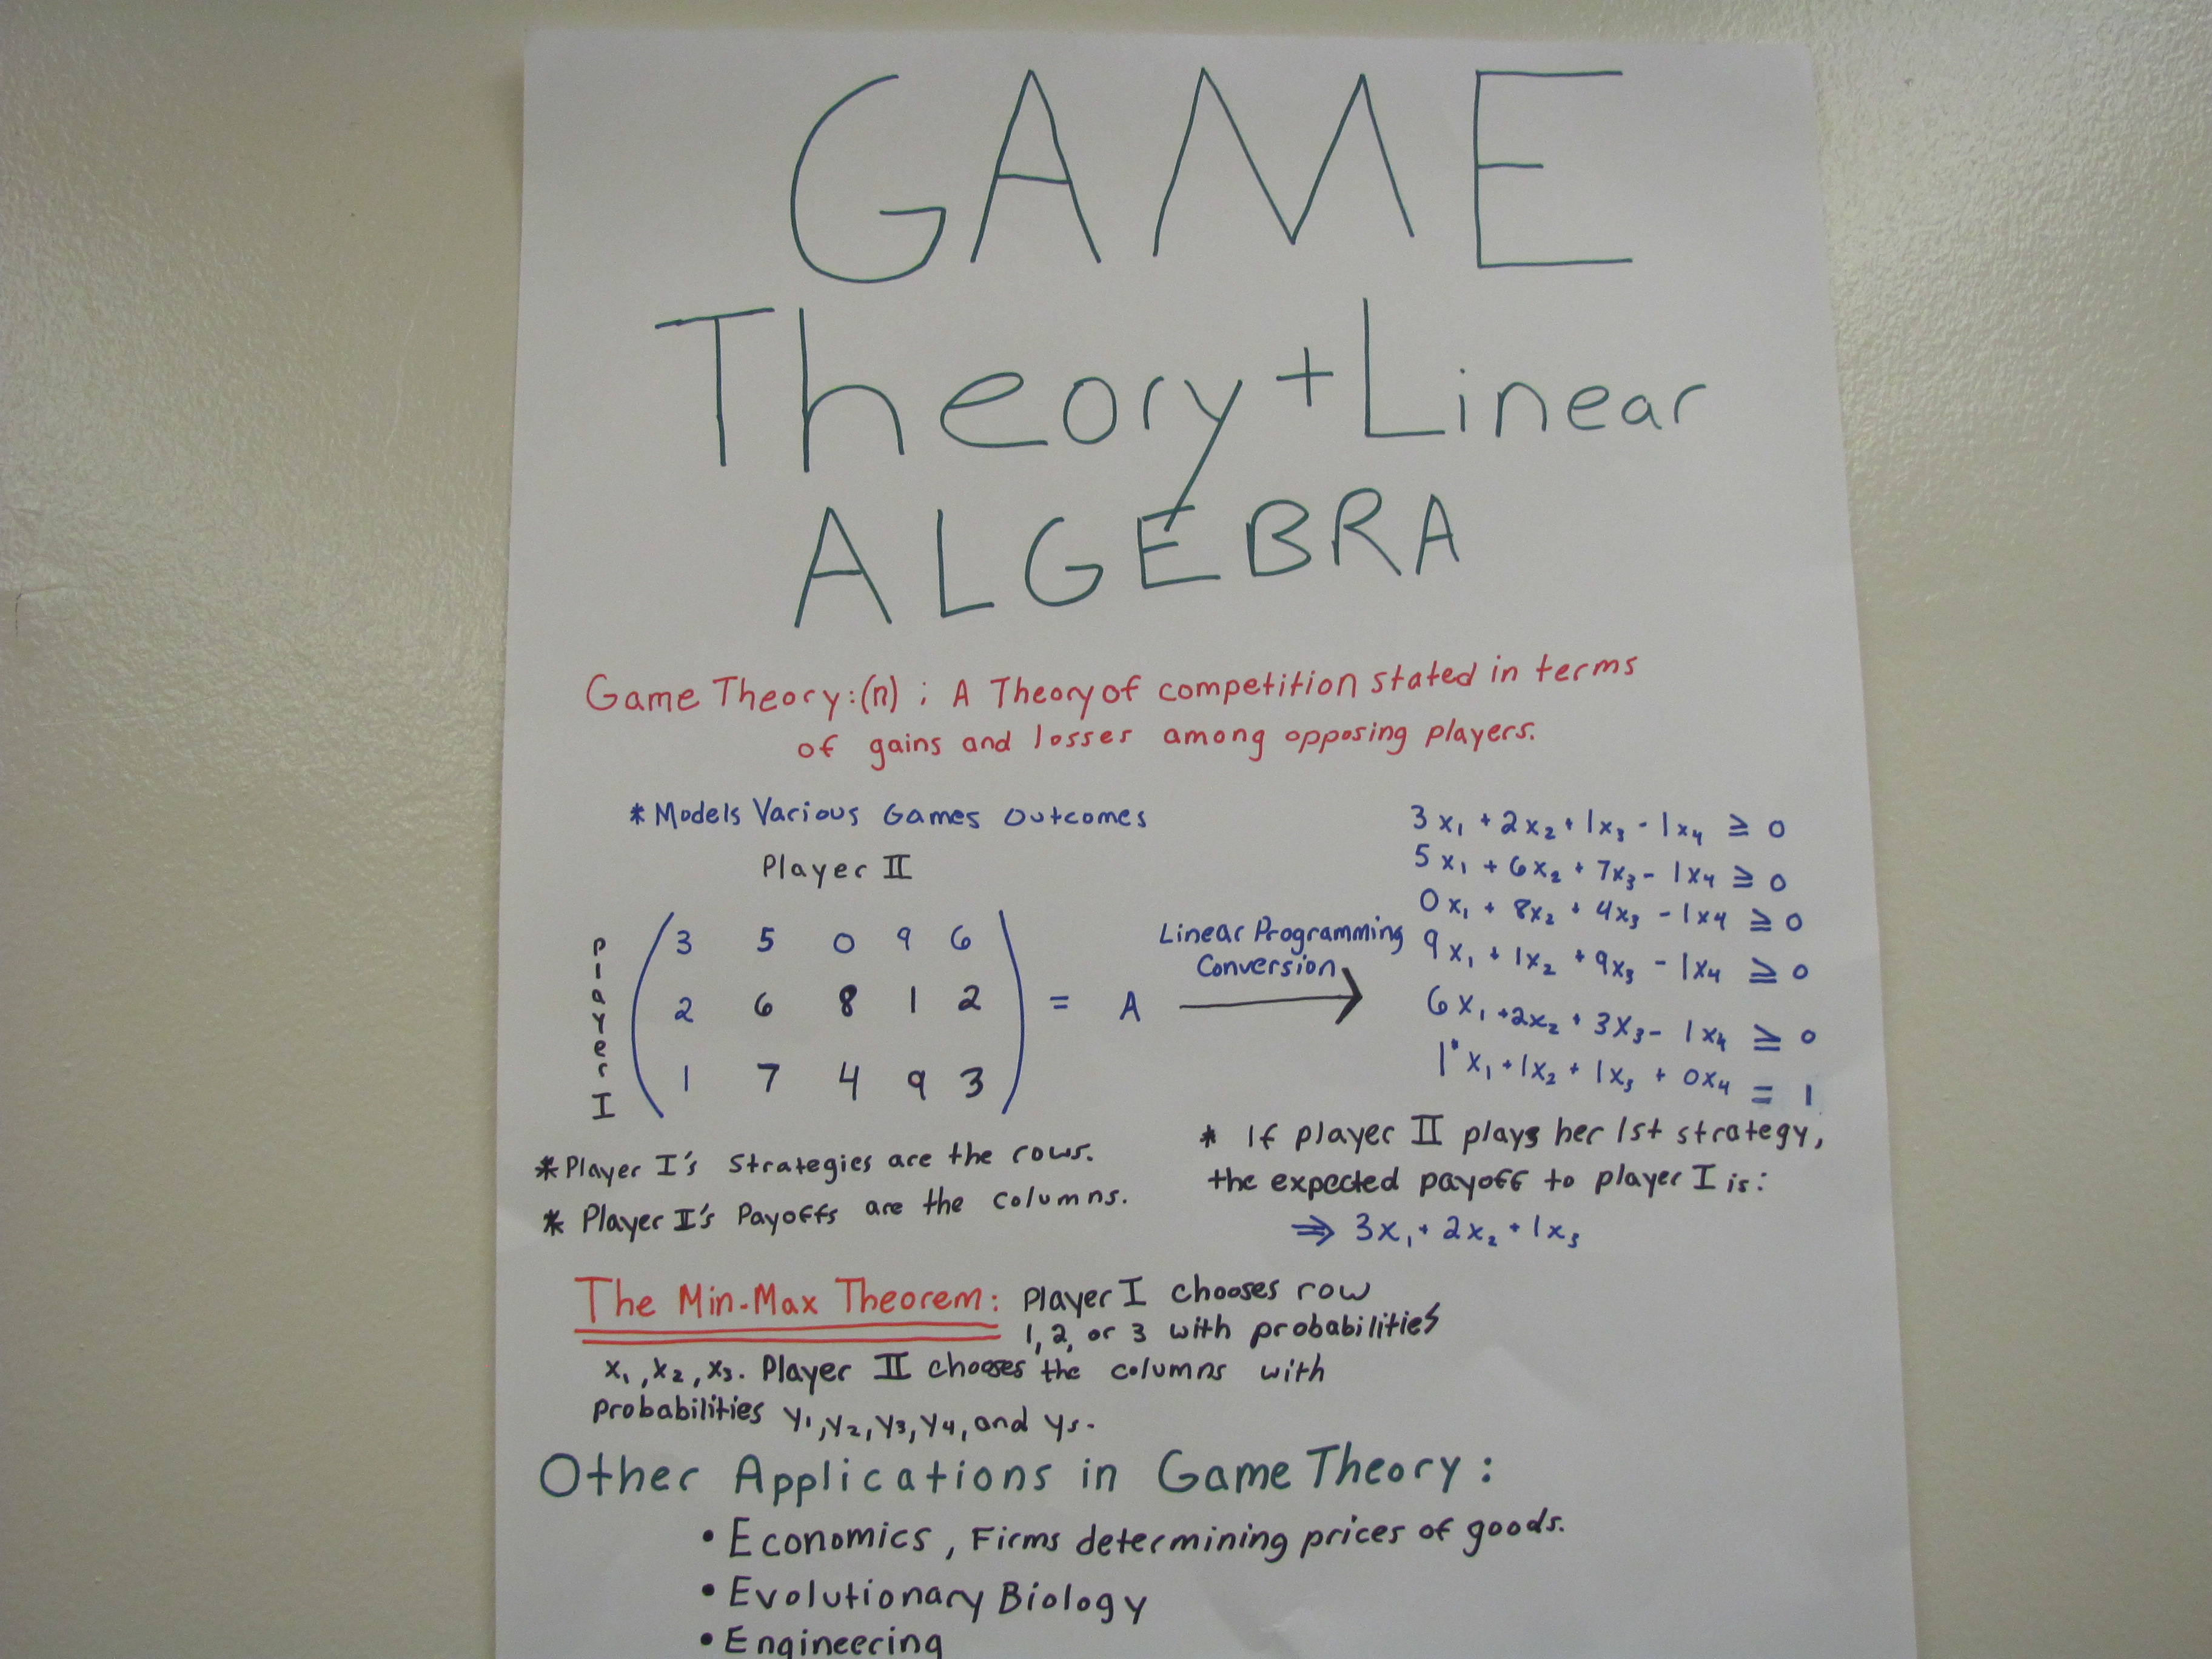 GAME
Theory + Linear
ALGEBRA
Game Theory:(n); A Theory of competition stated in terms
of gains and losses among opposing players.
* Models Various Games Outcomes
Player II
Player I
3 5 0 9 6
2 6 8 1 2
1 7 4 9 3
= A
Linear Programming
Conversion
3x₁ + 2x₂ + 1x₃ - 1x₄ ≥ 0
5x₁ + 6x₂ + 7x₃ - 1x₄ ≥ 0
0x₁ + 8x₂ + 4x₃ - 1x₄ ≥ 0
9x₁ + 1x₂ + 9x₃ - 1x₄ ≥ 0
6x₁ + 2x₂ + 3x₃ - 1x₄ ≥ 0
1x₁ + 1x₂ + 1x₃ + 0x₄ = 1
* Player I's Strategies are the rows.
* Player II's Payoffs are the columns.
* If player II plays her 1st strategy,
the expected payoff to player I is:
⇒ 3x₁ + 2x₂ + 1x₃
The Min-Max Theorem: Player I chooses row
1, 2, or 3 with probabilities
x₁, x₂, x₃. Player II chooses the columns with
probabilities y₁, y₂, y₃, y₄, and y₅.
Other Applications in Game Theory:
• Economics, Firms determining prices of goods.
• Evolutionary Biology
• Engineering